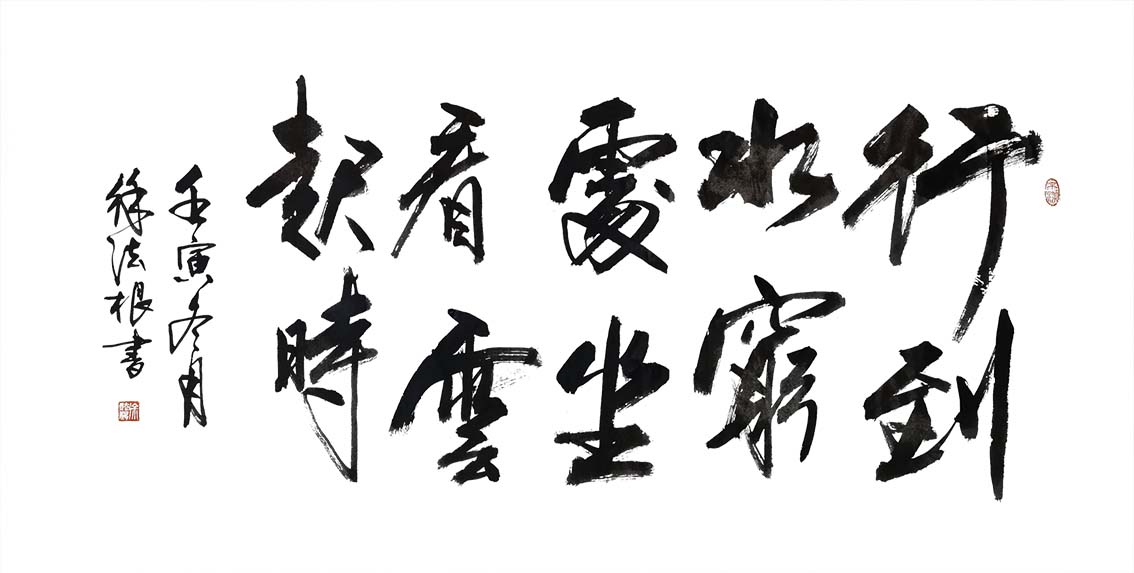 行到
水窮
處坐
看雲
起時
壬寅冬月
徐法根書